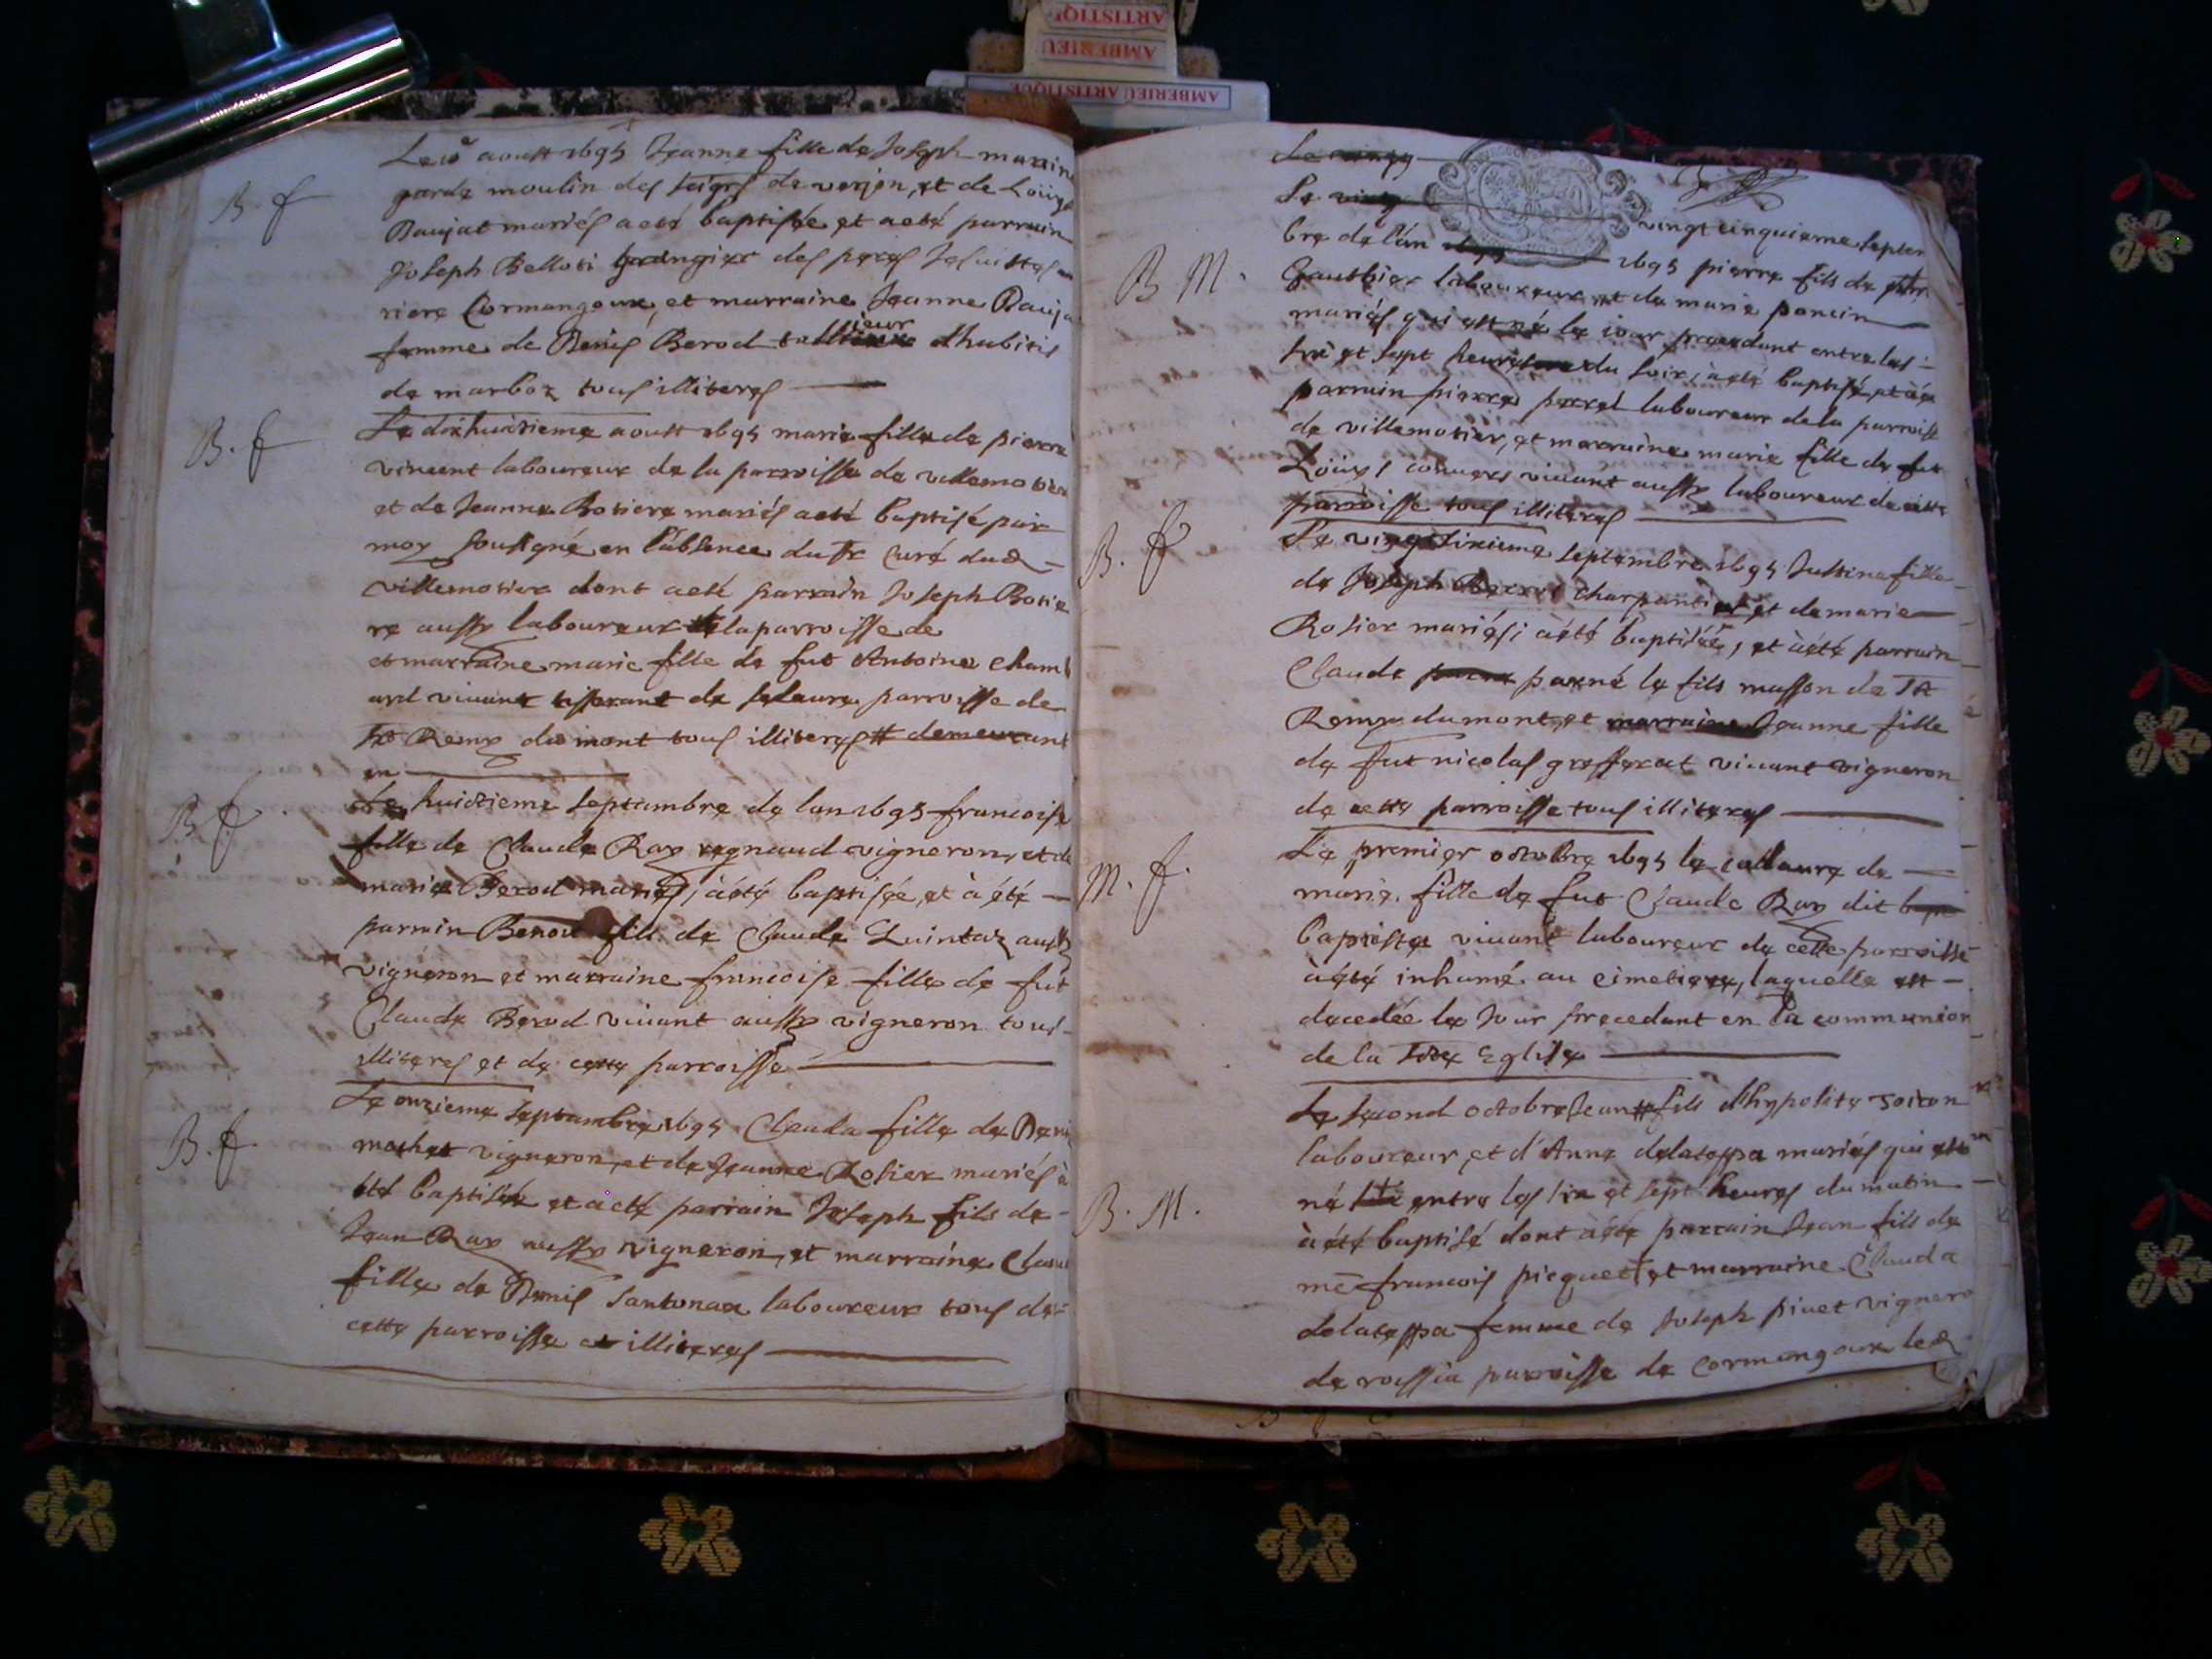 ARTISTIQ
AMBERIEU
AMBERIEU ARTISTIQUE
B. f
Le aoust 1695 Jeanne fille de Joseph
garde moulin des seigrs de verjon, et de Loüise
Baujat mariés a eté baptisée et a eté parrain
Joseph Belloti grangier des peres Jesuittes
riere Cormangoux, et marraine Jeanne Bauja
femme de Denis Berod tallieur dhabitis
de marboz tous illiteres
B. f
Le dixhuitieme aoust 1695 marie fille de pierre
vincent laboureur de la parroisse de villemotier
et de Jeanne Botiere mariés a eté baptisé par
moy soussigné en l'absence du Sr curé dud
villemotier dont a eté parrain Joseph Botie
re aussy laboureur # de la parroisse de
et marraine marie fille de fut Antoine
vivant tisserant de parroisse de
St Remy du mont tous illiteres # demeurant
en
B. f
Le huictieme septembre de lan 1695 francoise
fille de Claude Ray regnaud vigneron, et de
marie Berod mariés, à été baptisée, et à été
parrain Benoit fils de Claude Quintaz aussy
vigneron et marraine francoise fille de fut
Claude Berod vivant aussy vigneron tous
illiteres et de cette parroisse
B. f
Le onzieme septembre 1695 Clauda fille de Deni
mochet vigneron, et de Jeanne Rosier mariés à
eté baptisée et a eté parrain Joseph fils de
Jean Ray aussy vigneron, et marraine Clau
fille de Denis Santonax laboureur tous de
cette parroisse et illiteres
Le vingt
Le vingt
vingt cinquieme septem
B M.
bre de l'an 1695 pierre fils de
Gauthier laboureur et de marie poncin
mariés qui est né le jour precedant entre les
six et sept heures du soir, à eté baptisé, et à é
parrain pierre perret laboureur de la parroisse
de villemotier, et marraine marie fille de fut
Loüys convers vivant aussy laboureur de cette
parroisse tous illiteres
B. f
Le vingt sixieme septembre 1695 Justine fille
de Joseph charpentier et de marie
Rosier mariés; à été baptisée, et à été parrain
Claude panné le fils masson de St
Remy du mont, et marraine Jeanne fille
de fut nicolas grefferat vivant vigneron
de cette parroisse tous illiteres
M. f.
Le premier octobre 1695 le cadavre de
marie fille de fut Claude Ray dit bap
baptista vivant laboureur de cette parroisse
à été inhumé au cimetiere, laquelle est
decedée le Jour precedant en la communion
de la Ste Eglise
B. M.
Le second octobre Jean # fils d'hypolite Joiton
laboureur, et d'Anne delatoppa mariés qui est
né entre les six et sept heures du matin
à été baptisé dont à été parrain Jean fils de
me francois picquet et marraine Clauda
delatoppa femme de Joseph pivet vignero
de rossia parroisse de Cormangoux led